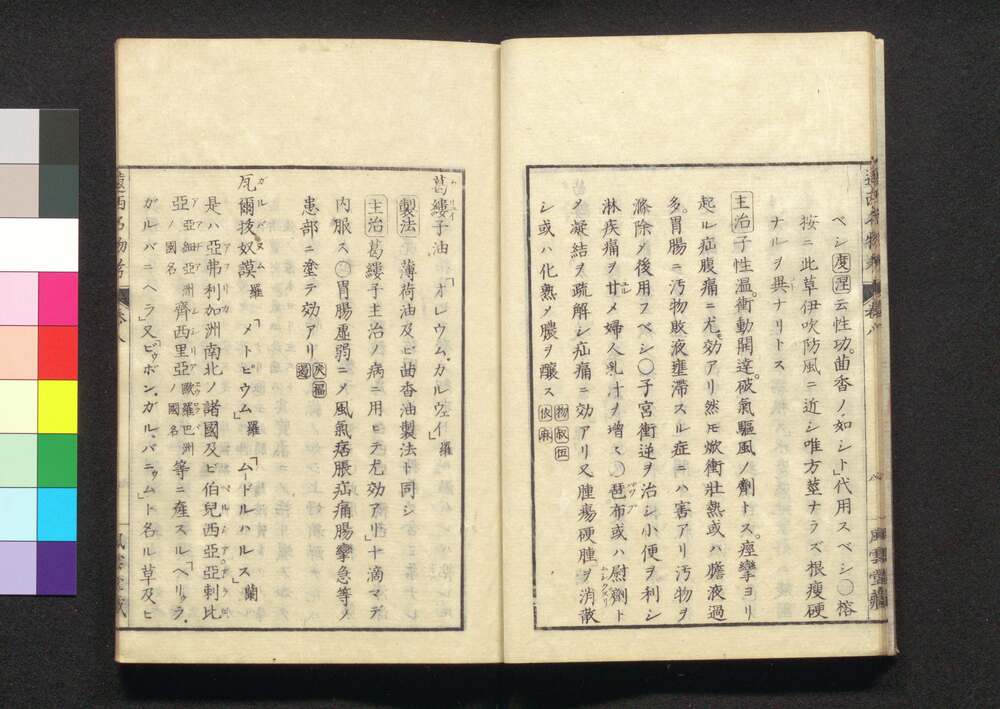 ベシ度涅云性功茴香ノ如シト」代用スベシ〇榕
按ニ此草伊吹防風ニ近シ唯方莖ナラズ根瘦硬
ナルヲ異ナリトス
主治子性温衝動開達破氣驅風ノ劑トス痙攣ヨリ
起ル疝腹痛ニ尤效アリ然モ焮衝壯熱或ハ膽液過
多胃腸ニ汚物敗液壅滯スル症ニハ害アリ汚物ヲ
滌除メ後用スベシ〇子宮衝逆ヲ治シ小便ヲ利シ
淋疾痛ヲ甘メ婦人乳汁ヲ增ス〇琶布或ハ熨劑ト
メ凝結ヲ疏解シ疝痛ニ効アリ又腫瘍硬腫ヲ消散
シ或ハ化熟メ膿ヲ釀ス
葛縷子油「オレウム、カルウィ」羅
製法 薄荷油及ビ茴香油製法ト同シ
主治 葛縷子主治ノ病ニ用ヒテ尤効アリ」十滴マデ
内服ス〇胃腸虚弱ニメ風氣痞脹疝痛腸攣急等ノ
患部ニ塗テ効アリ
瓦爾抜奴謨羅「メトピウム」羅「ムードルハルス」蘭
是ハ亞弗利加洲南北ノ諸國及ビ伯兒西亞亞剌比
亞亞細亞洲ノ國名齊西里亞歐羅巴洲ノ國名等ニ産スル「ヘリュラ、
ガルバニヘラ」又「ボン、ガル、バニゥム」ト名ル草及ビ
遠西名物考
風雲堂藏